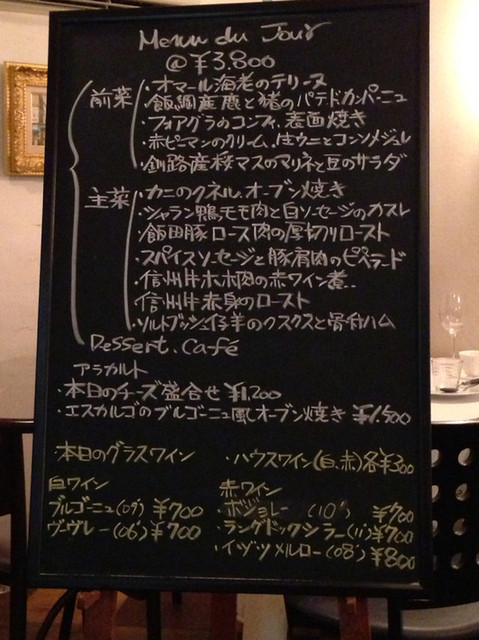 Menu du Jour
@ ¥3.800
前菜
・オマール海老のテリーヌ
・飯綱産鹿と猪のパテドカンパーニュ
・フォアグラのコンフィ、表面焼き
・赤ピーマンのクリーム、生ウニとコンソメジュレ
・釧路産桜マスのマリネと豆のサラダ
主菜
・カニのクネル、オーブン焼き
・シャラン鴨モモ肉と白ソーセージのカスレ
・飯田豚ロース肉の厚切りロースト
・スパイスソーセージと豚肩肉のピペラード
・信州牛ホホ肉の赤ワイン煮
信州牛赤身のロースト
・ソルトブッシュ仔羊のクスクスと骨付ハム
Dessert. Café
アラカルト
・本日のチーズ盛合せ ¥1,200
・エスカルゴのブルゴーニュ風オーブン焼き ¥1,500
・本日のグラスワイン
・ハウスワイン(白、赤)各¥300
白ワイン
ブルゴーニュ(09') ¥700
ヴーヴレー(06') ¥700
赤ワイン
・ボジョレー (10') ¥700
・ラングドックシラー(11') ¥700
・イヅツメルロー(08') ¥800